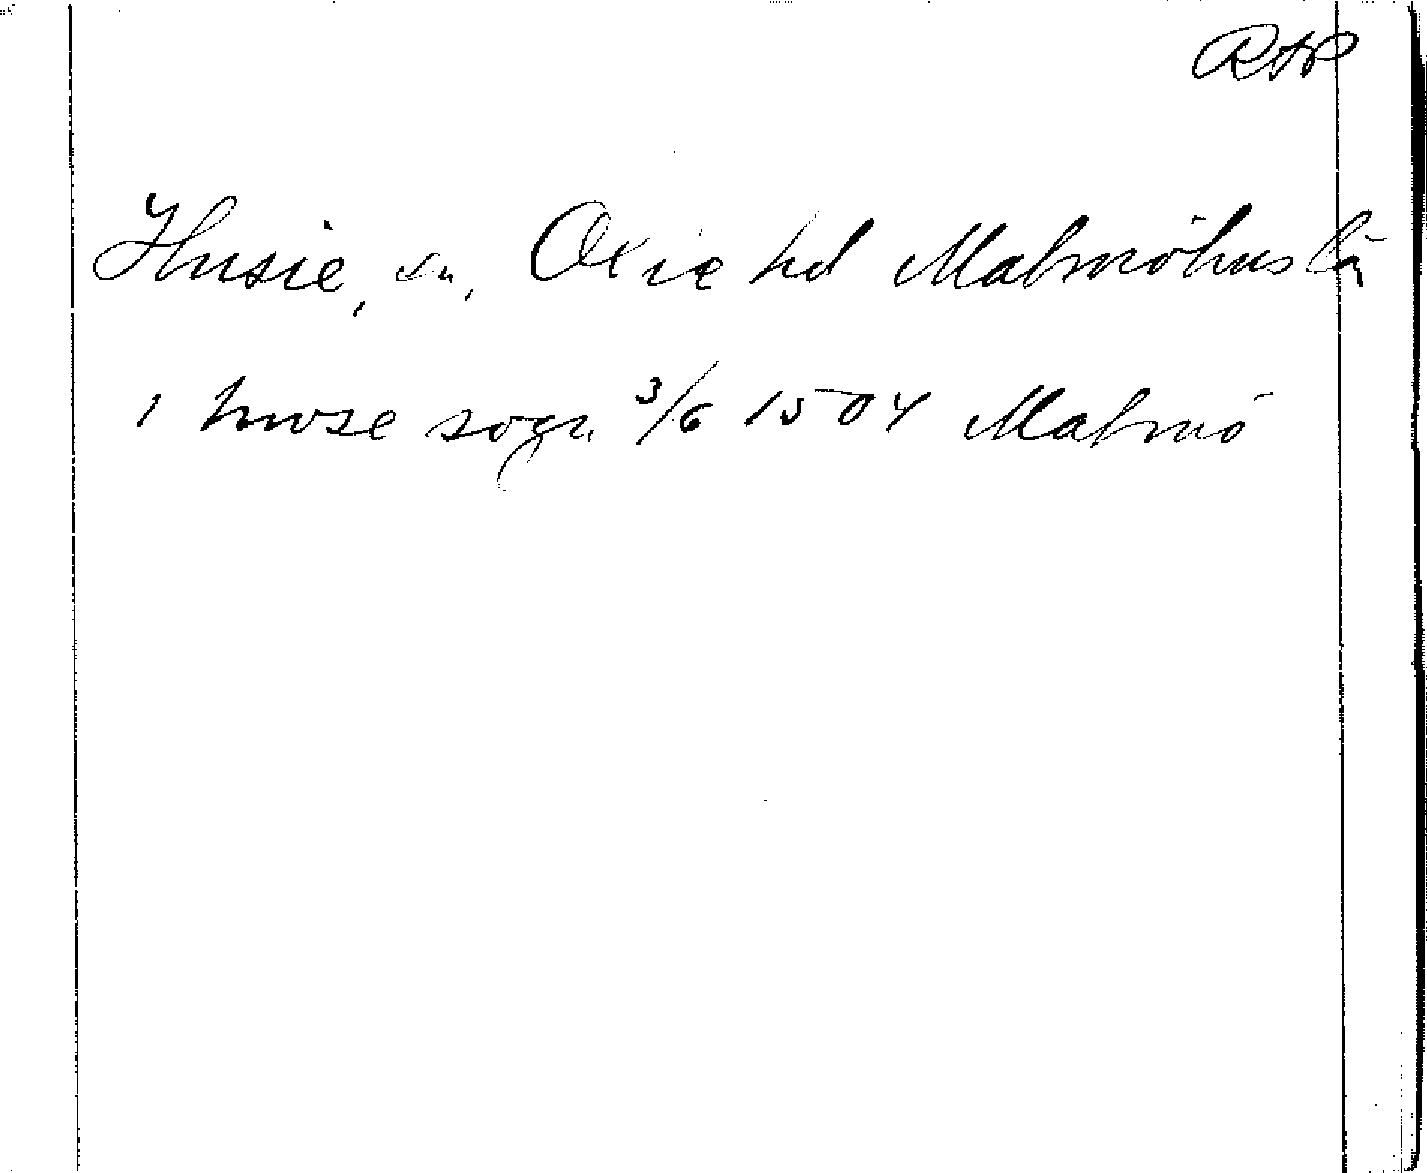 RAP
Husie, sn, Oxie hd Malmöhus lä
i hwse sogn 3/6 1504 Malmö